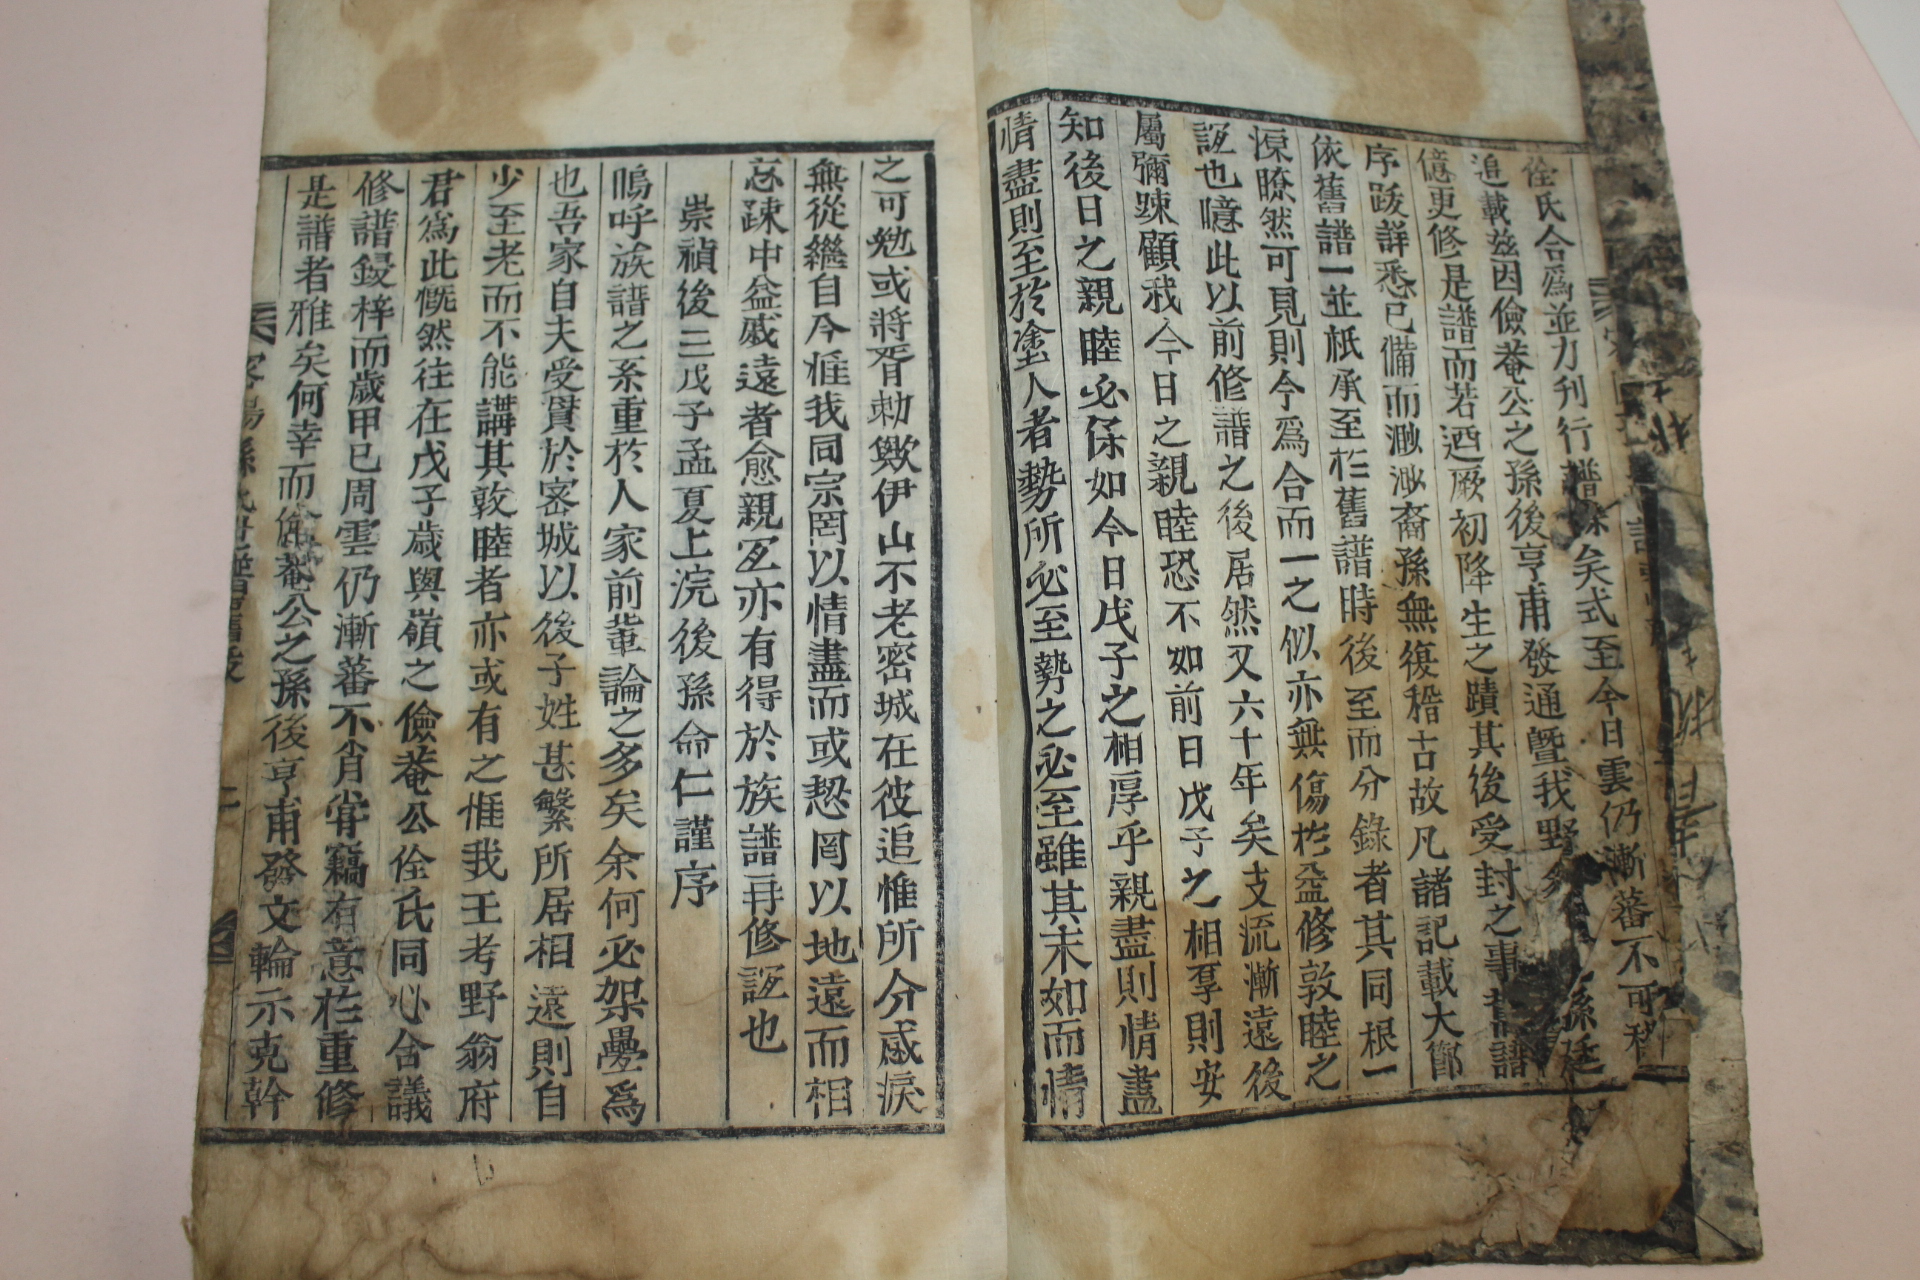 佺氏合爲並力刋行譜
矣式至今日雲仍漸蕃不可
追載玆因儉菴公之孫後亨甫發通曁我野
孫廷
億更修是譜而若迺厥初降生之蹟其後受封之事舊譜
序跋詳悉已備而渺渺裔孫無復稽古故凡諸記載大鄭
依舊譜一並祇承至於舊譜時後至而分錄者其同根一
源瞭然可見則今爲合而一之似亦無傷於益修敦睦之
誼也噫此以前修譜之後居然又六十年矣支流漸遠後
屬彌踈顧我今日之親睦恐不如前日戊子之相孚則安
知後日之親睦必保如今日戊子之相厚乎親盡則情盡
情盡則至於塗人者勢所必至勢之必至雖其未如而情
之可勉或將胥勅歟伊山不老密城在彼追惟所分感淚
無從繼自今惟我同宗罔以情盡而或恝罔以地遠而相
忘踈中益戚遠者愈親寔亦有得於族譜再修誼也
崇禎後三戊子孟夏上浣後孫命仁謹序
嗚呼族譜之系重於人家前輩論之多矣余何必架疊爲
也吾家自夫受貫於密城以後子姓甚繁所居相遠則自
少至老而不能講其敦睦者亦或有之惟我王考野翁府
君爲此慨然往在戊子歲與嶺之儉菴公佺氏同心合議
修譜鋟梓而歲甲已周雲仍漸蕃不肖甞竊有意於重修
是譜者雅矣何幸而儉菴公之孫後亨甫發文輪示克幹
密陽孫氏世譜舊跋
二